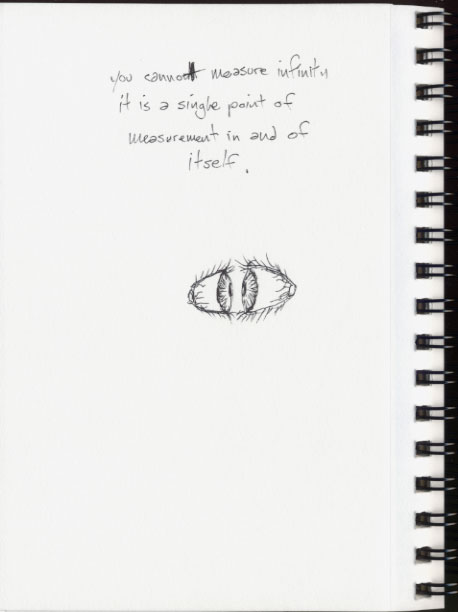 you cannot measure infinity
it is a single point of
measurement in and of
itself.